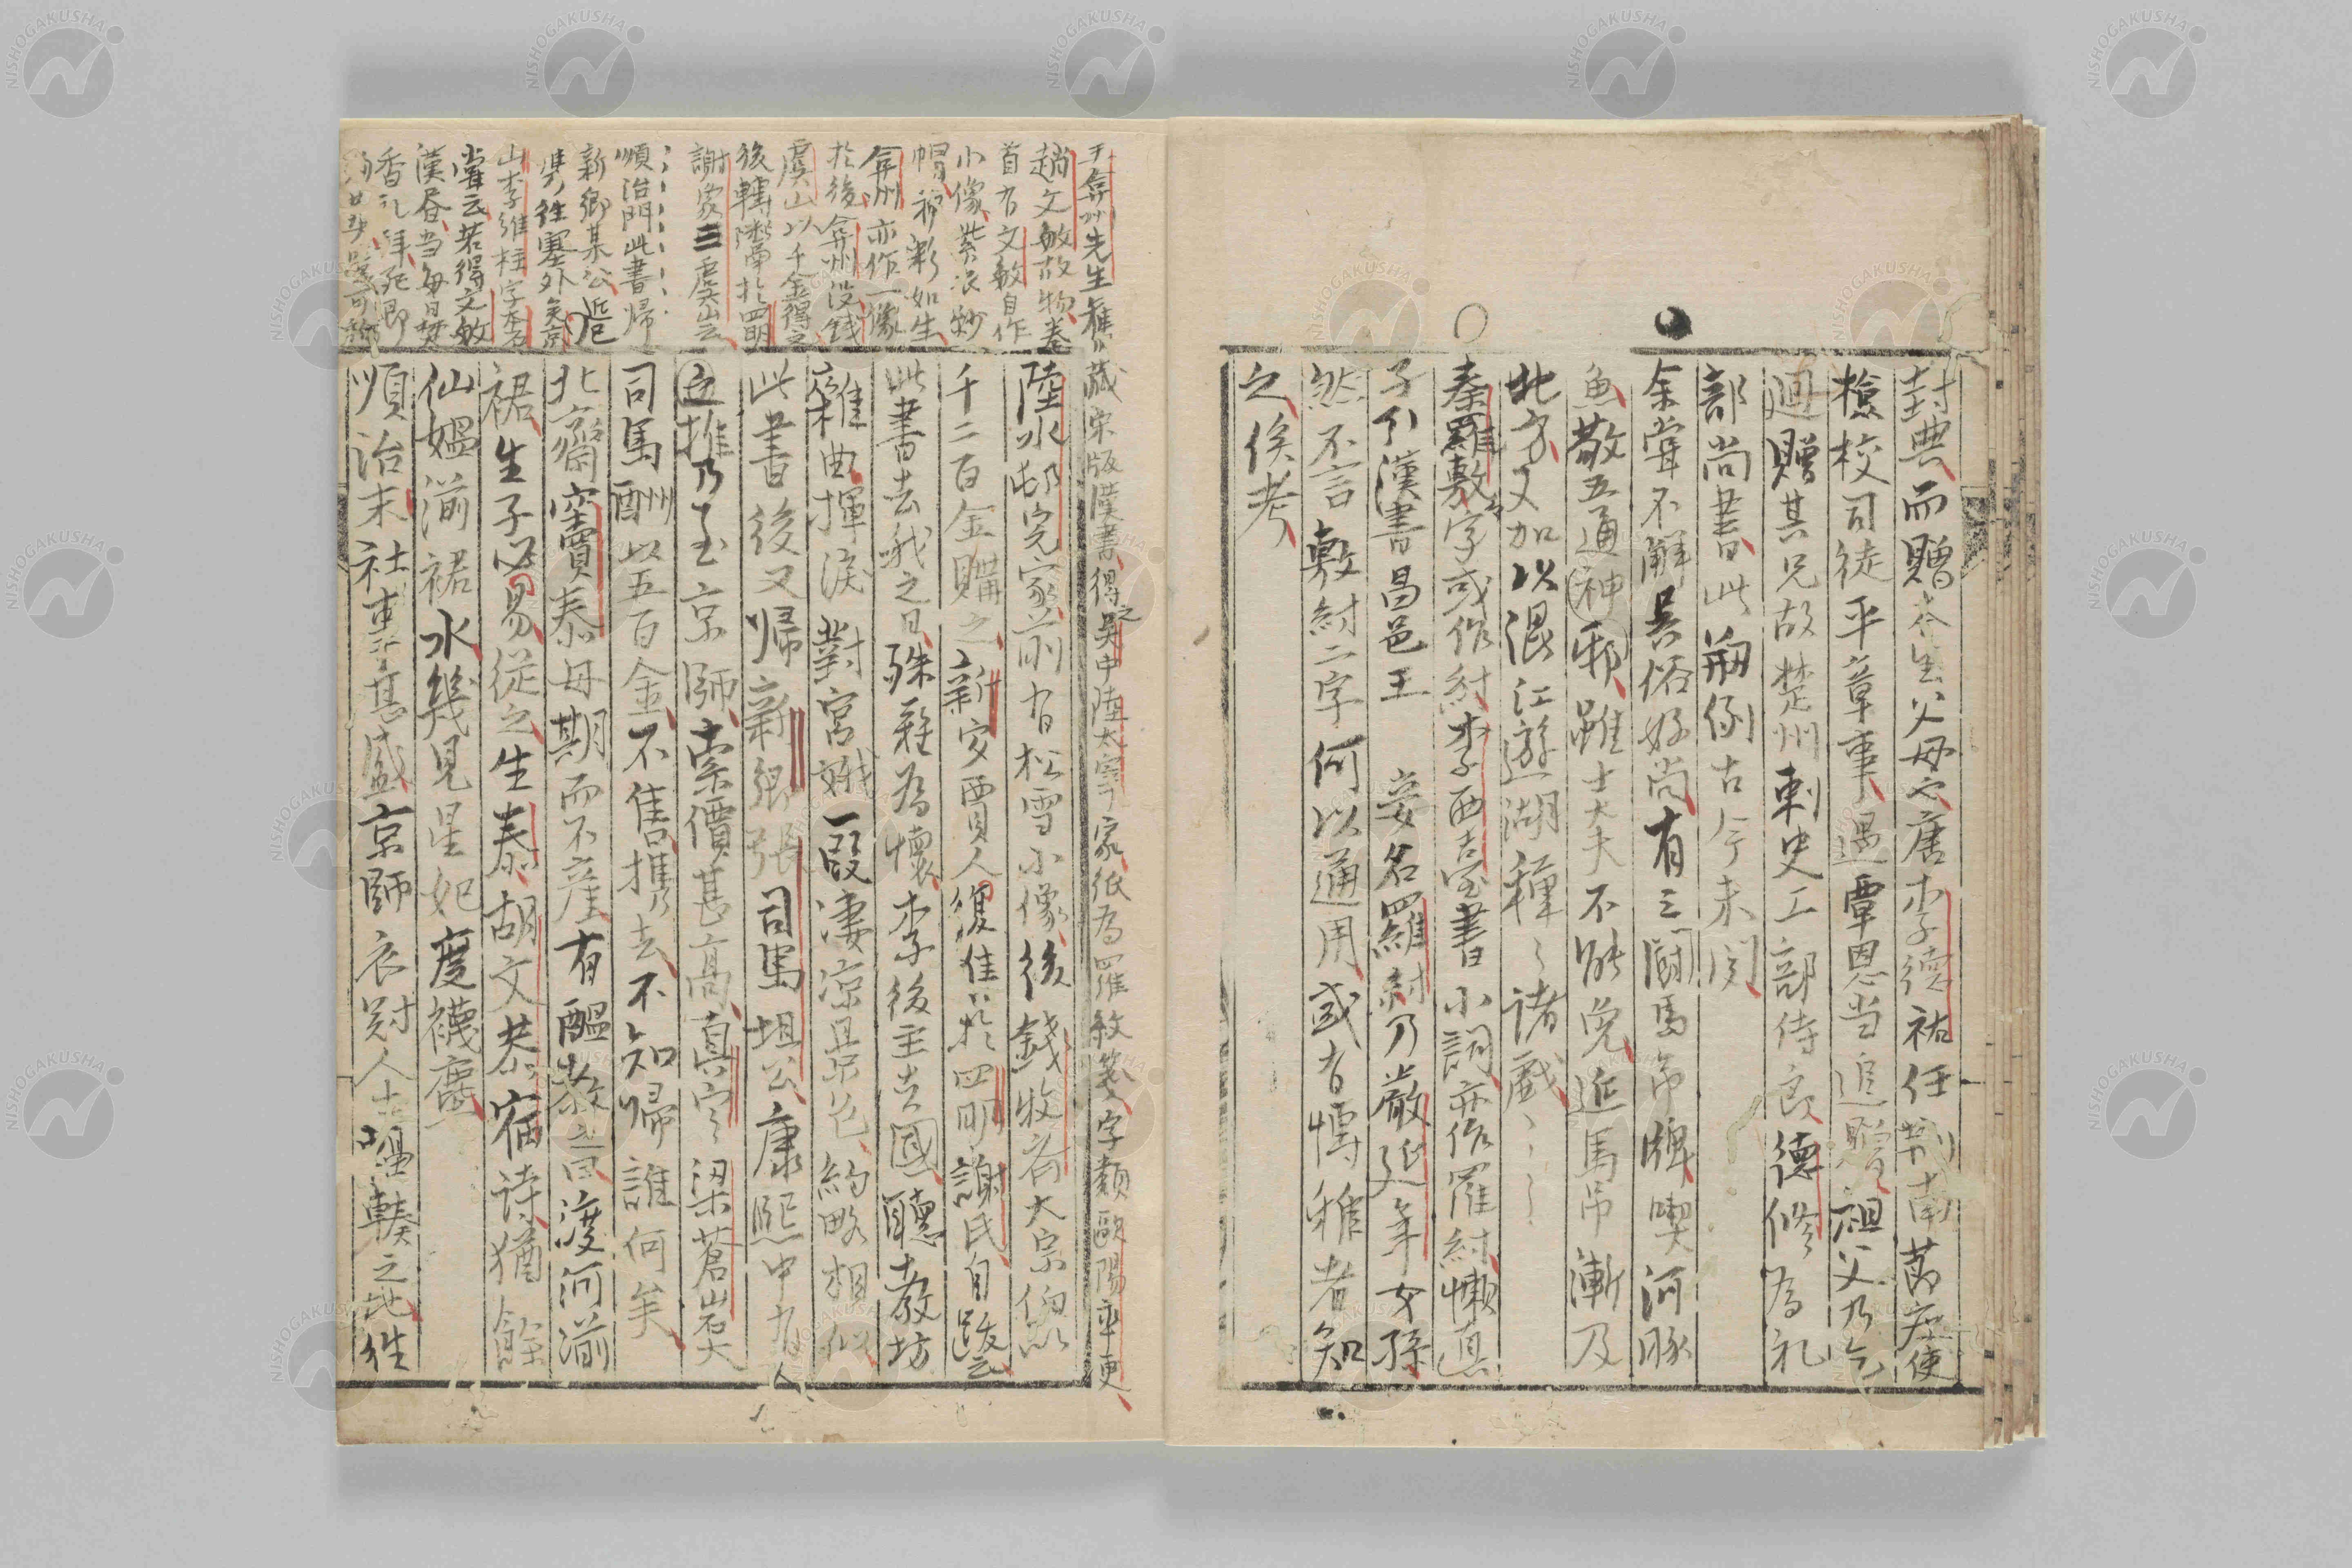 封典而贈本生父母也唐李德祐任劍南節度使
檢校司徒平章事遇覃恩当追贈祖父乃乞
迴贈其兄故楚州刺史工部侍郎德修為礼
部尚書此朔例古今未聞
余嘗不解吳俗好尚有三鬭馬吊牌喫河豚
魚敬五通神邪雖士大夫不能免近馬吊漸及
北方又加以混江遊湖種〻諸戲
秦羅敷〻字或作紨李西臺書小詞亦作羅紨懶真
子引漢書昌邑王 妾名羅紨乃嚴延年女孫
然不言敷紨二字何以通用或有博雅者知
之俟考
王弇州先生舊藏宋版漢書得之吳中陸太宰家紙為羅紋箋字類歐陽率更
趙文敏故物卷
首有文敏自作
小像裝潢妙
帽衫斬如生
弇州亦作一像
於後弇州没錢
虞山以千金得之
後轉鬻於四明
謝家三虞山云
陸水邨完家前有松雪小像後錢牧齋大宗伯以
千二百金購之新安賈人復售於四明謝氏自跋云
此書去我之日殊難為懷李後主去國聽教坊
雜曲揮淚對宮娥一段凄凉景色約略相似
此書後又帰新鄉張司馬坦公康熙中有人
携乃至京師索價甚高真定梁蒼巖大
司馬酬以五百金不售携去不知帰誰何矣
順治門此書帰
新鄉某公近已
携往塞外矣京
山李維柱字本石
嘗云若得文敏
漢書当每日焚
香礼拜死即
北齋竇泰母期而不產有醞教之曰渡河湔
裙生子必易從之生泰胡文恭宿詩猶餘
仙媼湔裙水幾見星妃度襪塵
順治末社事甚盛京師衣冠人士輻輳之地往